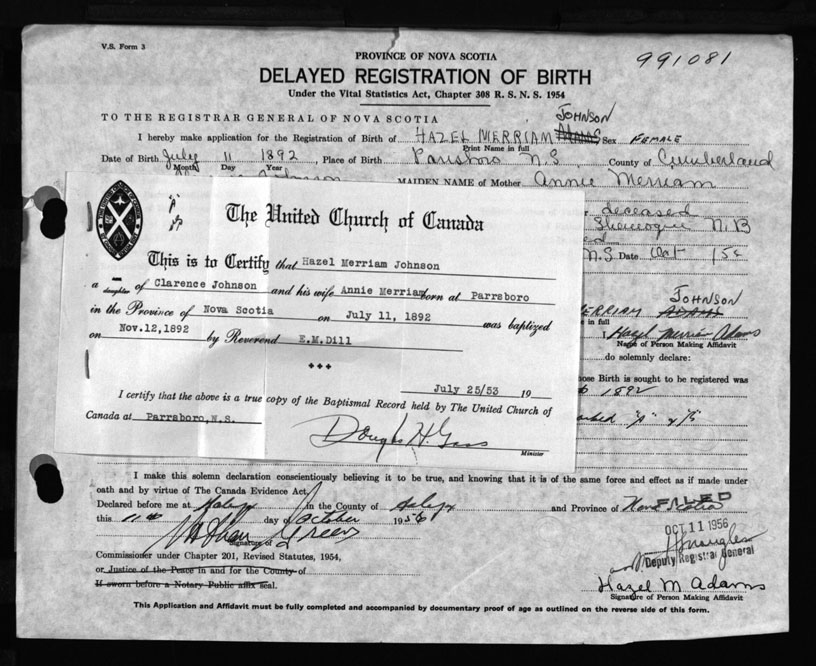 V.S. Form 3
991081
PROVINCE OF NOVA SCOTIA
DELAYED REGISTRATION OF BIRTH
Under the Vital Statistics Act, Chapter 308 R. S. N. S. 1954
TO THE REGISTRAR GENERAL OF NOVA SCOTIA
JOHNSON
I hereby make application for the Registration of Birth of HAZEL MERRIAM ADAMS Sex FEMALE
Print Name in full
Date of Birth July 11 1892, Place of Birth Parrsboro N.S. County of Cumberland
Month Day Year
Johnson MAIDEN NAME of Mother Annie Merriam
deceased
Shemogue N.B
N.S. Date Oct 15
The United Church of Canada
This is to Certify that Hazel Merriam Johnson
a daughter of Clarence Johnson and his wife Annie Merriam born at Parrsboro
in the Province of Nova Scotia on July 11, 1892 was baptized
on Nov.12,1892 by Reverend E.M.Dill
July 25/53 19
I certify that the above is a true copy of the Baptismal Record held by The United Church of
Canada at Parrsboro,N.S.
Minister
JOHNSON
MERRIAM ADAMS
in full
I Hazel Merriam Adams
Name of Person Making Affidavit
do solemnly declare:
hose Birth is sought to be registered was
1892
"A" & "B"
I make this solemn declaration conscientiously believing it to be true, and knowing that it is of the same force and effect as if made under
oath and by virtue of The Canada Evidence Act.
Declared before me at Halifax in the County of Halifax and Province of Nova Scotia
FILED
this 11th day of October 1956
OCT 11 1956
Signature of
Deputy Registrar General
Commissioner under Chapter 201, Revised Statutes, 1954,
or Justice of the Peace in and for the County of
If sworn before a Notary Public affix seal.
Hazel M Adams
Signature of Person Making Affidavit
This Application and Affidavit must be fully completed and accompanied by documentary proof of age as outlined on the reverse side of this form.